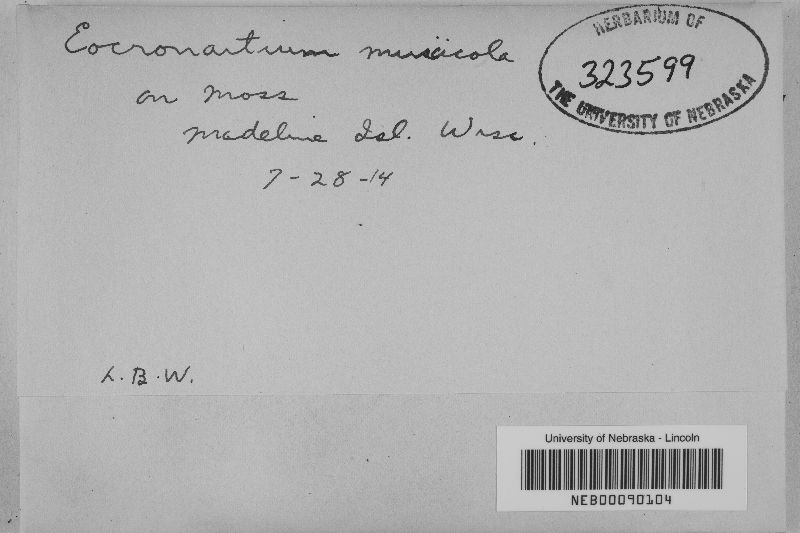 Eocronartium muscicola
on moss
Madeline Isl. Wisc.
7-28-14
HERBARIUM OF
323599
THE UNIVERSITY OF NEBRASKA
L.B.W.
University of Nebraska - Lincoln
NEB00090104